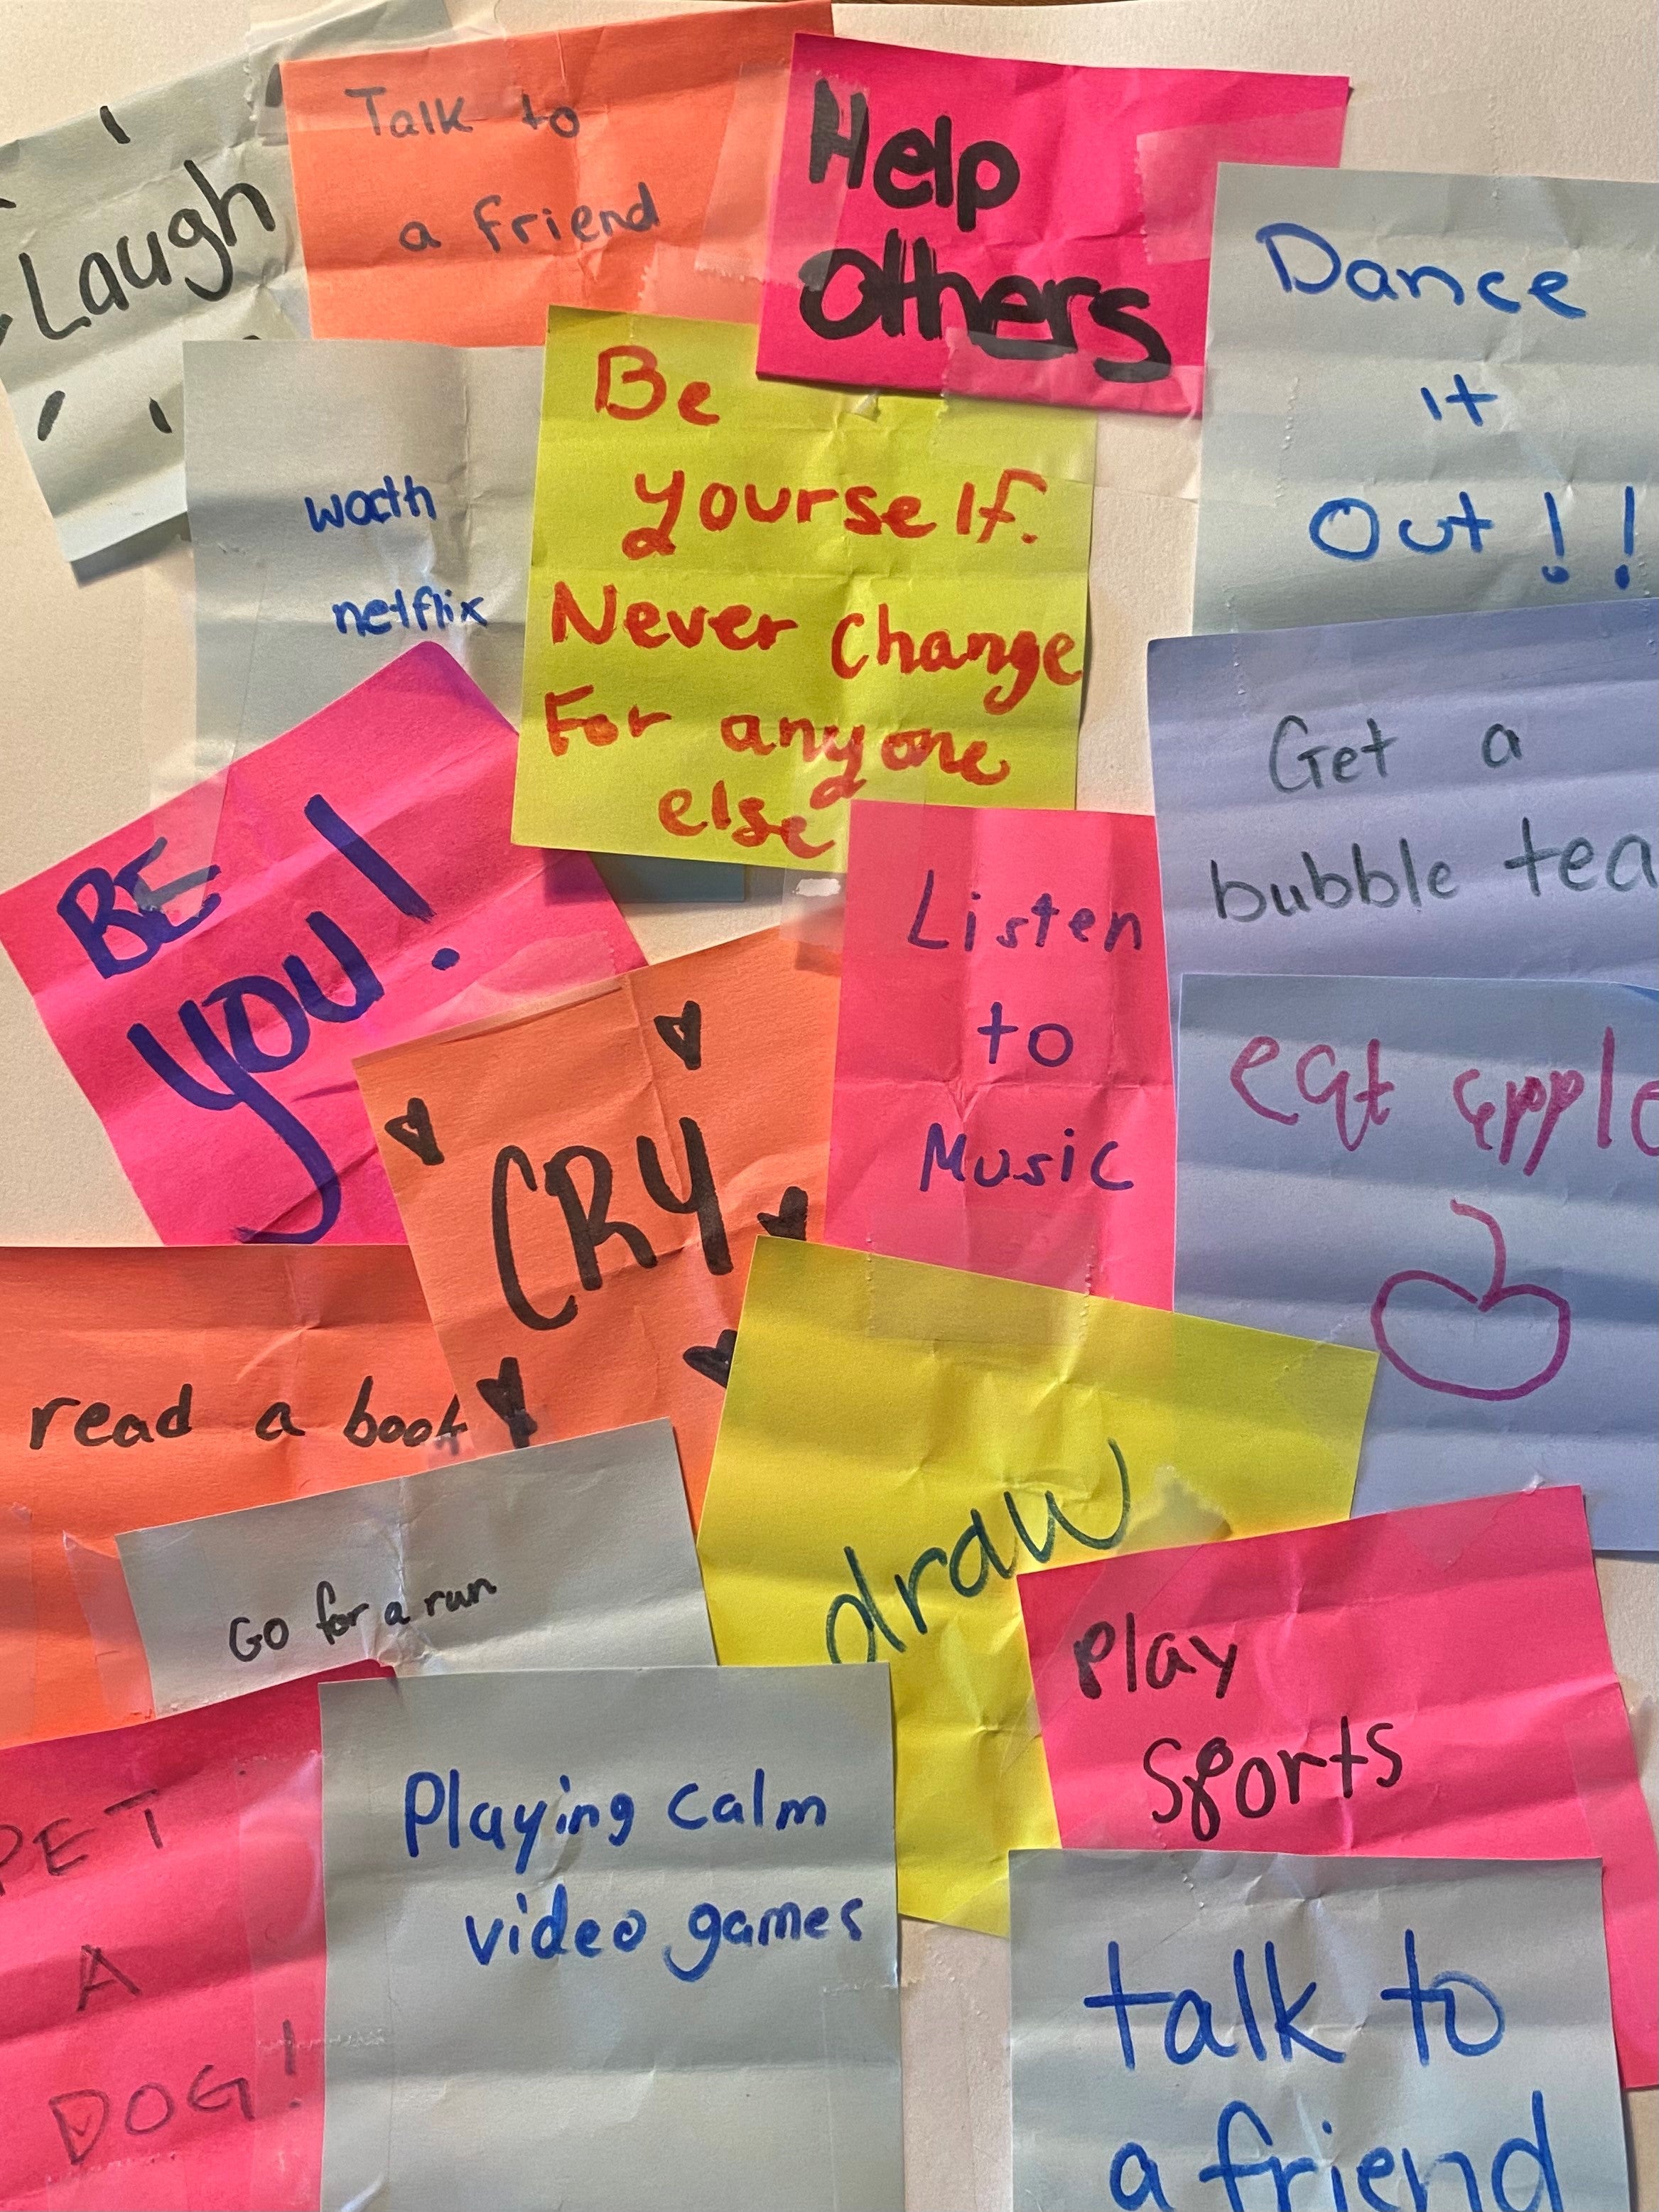 Laugh
Talk to
a friend
Help
others
Dance
it
Out!!
wacth
netflix
Be
yourself.
Never change
For anyone
else
Get a
bubble tea
BE
YOU!
Listen
to
Music
eat apple
CRY
read a book
Go for a run
draw
Play
Sports
PET
A
DOG!
Playing calm
video games
talk to
a friend